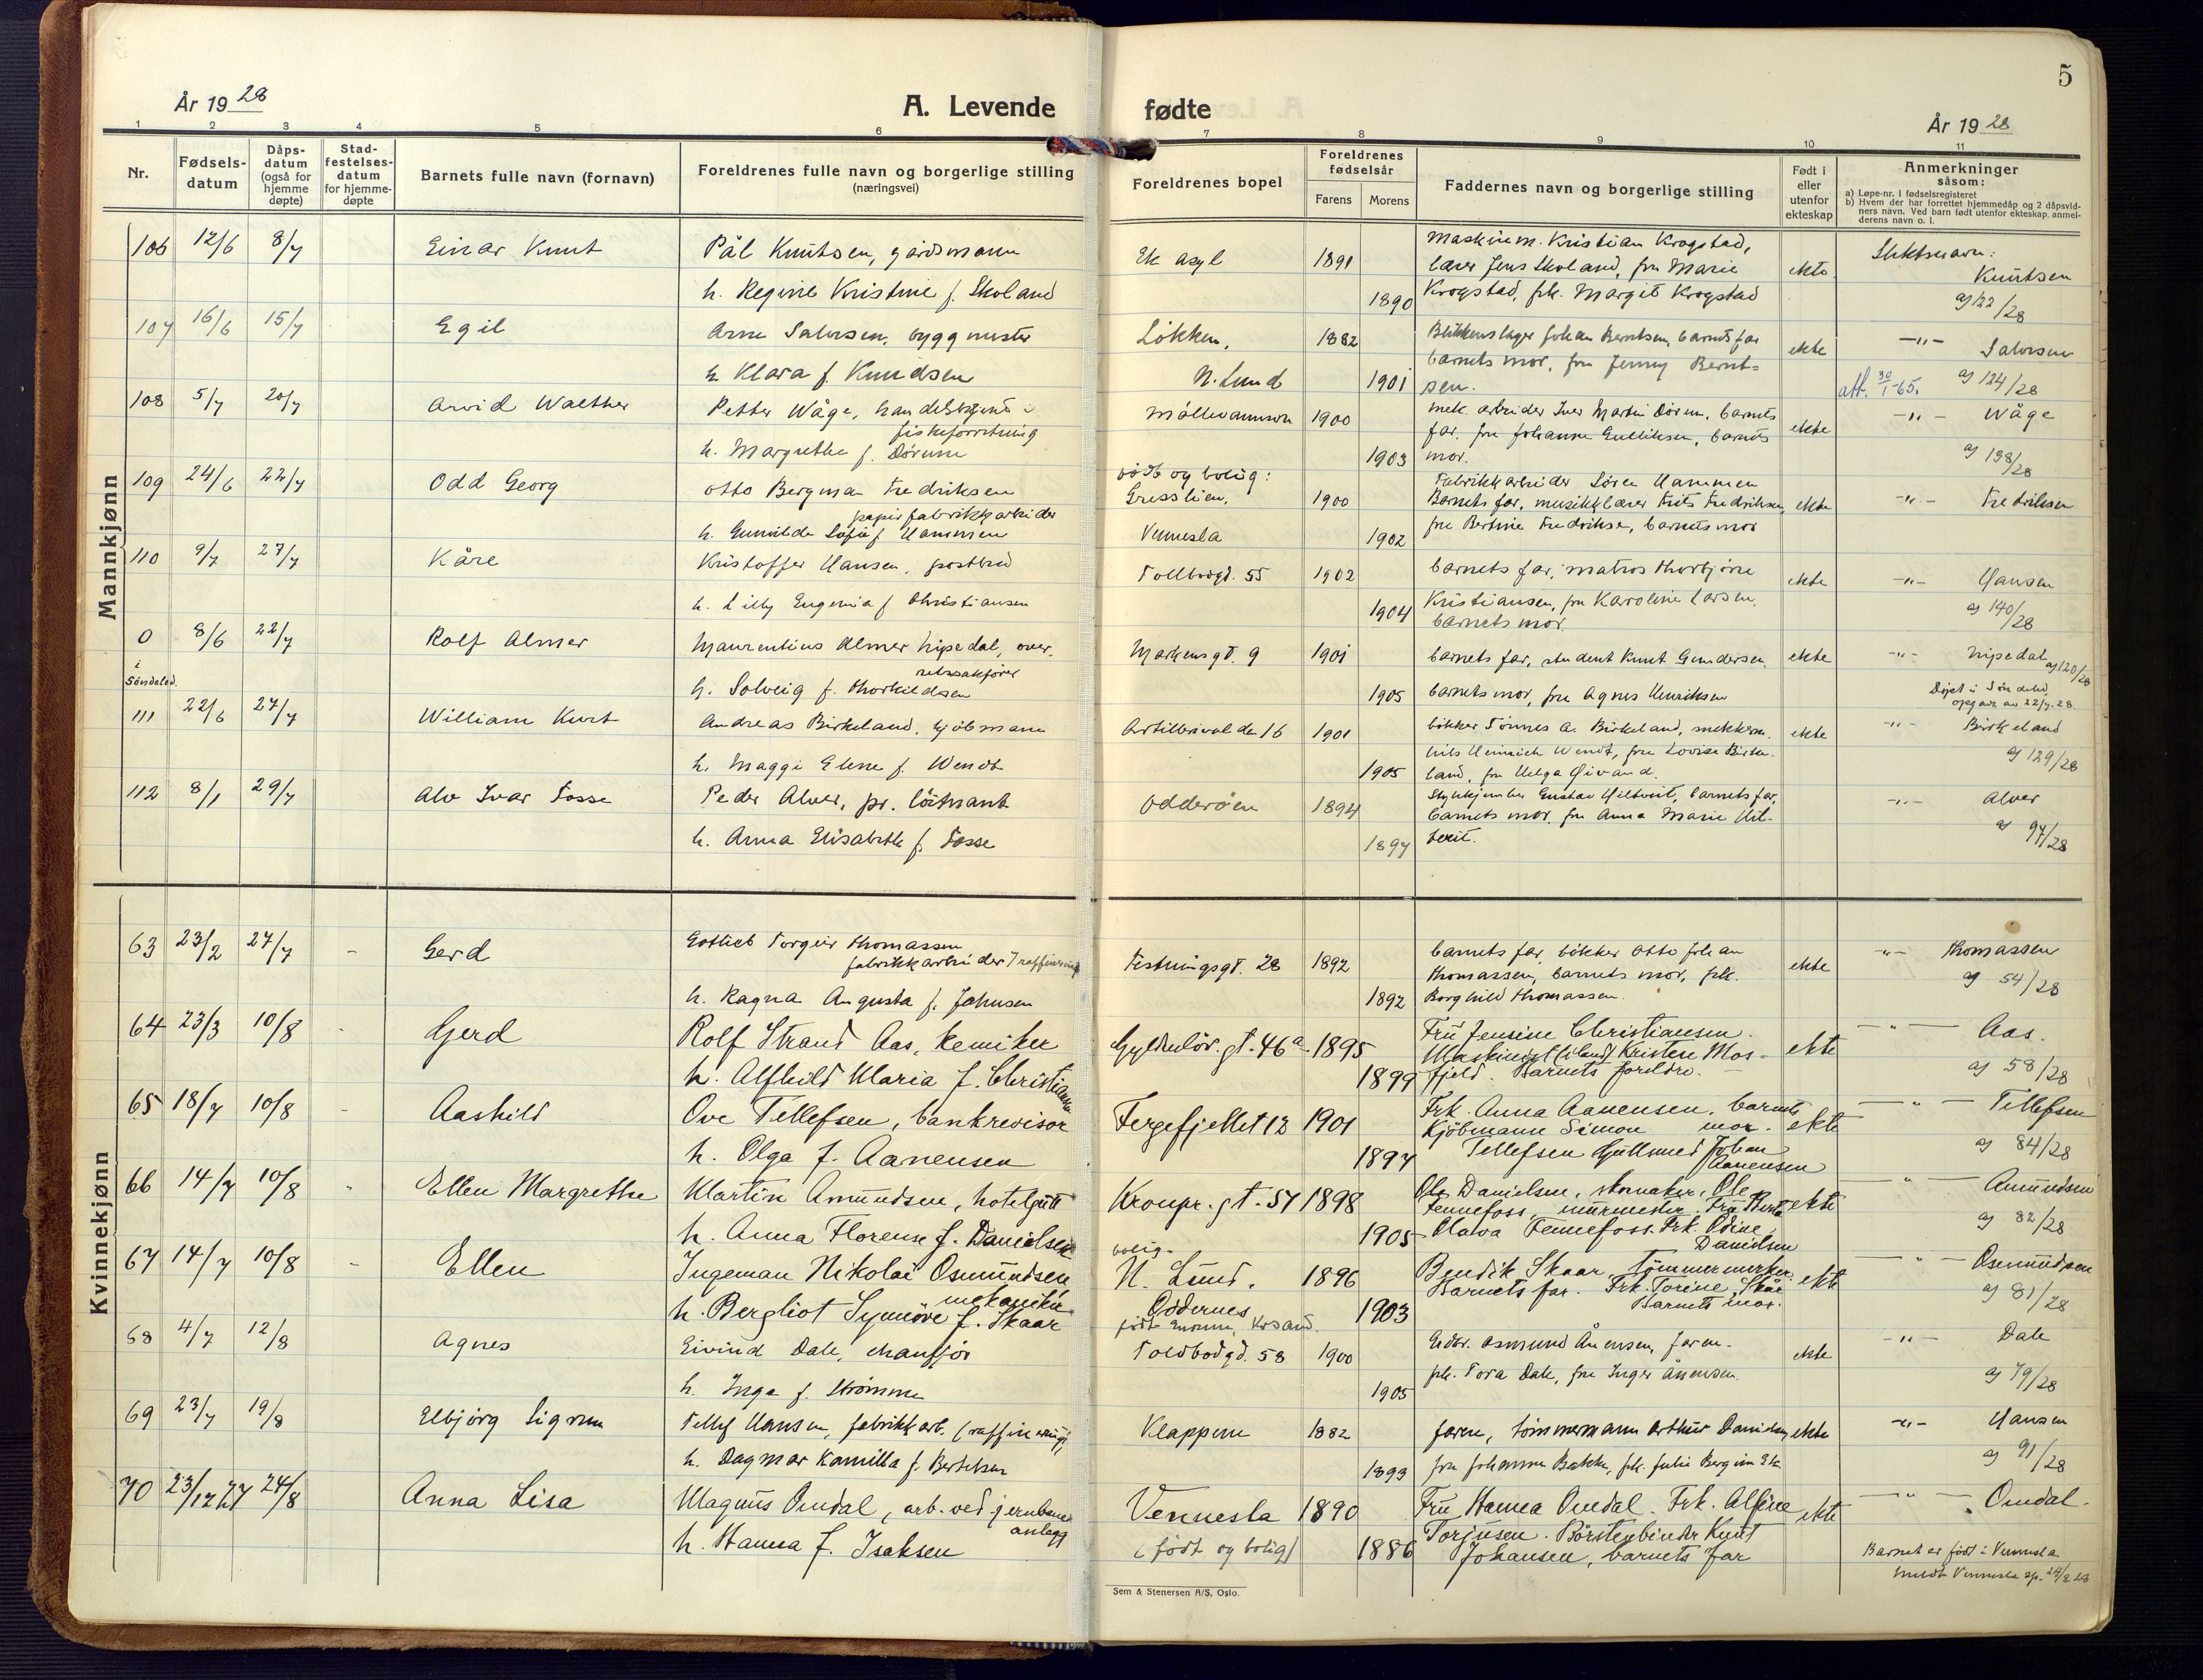 5
År 19 28
A. Levende fødte
År 19 28
1 2 3 4 5 6 7 8 9 10 11
Nr.
Fødsels-datum
Dåps-datum (også for hjemme døpte)
Stad-festelses-datum for hjemme-døpte
Barnets fulle navn (fornavn)
Foreldrenes fulle navn og borgerlige stilling
(næringsvei)
Foreldrenes bopel
Foreldrenes fødselsår
Farens Morens
Faddernes navn og borgerlige stilling
Født i eller utenfor ekteskap
Anmerkninger
såsom:
a) Løpe-nr. i fødselsregisteret
b) Hvem der har forrettet hjemmedåp og 2 dåpsvid-
ners navn. Ved barn født utenfor ekteskap, anmel-
derens navn o. l.
Mannkjønn
106 12/6 8/7 Einar Knut Pål Knutsen, gårdsmann Ek asyl 1891 Maskinm. Kristian Krogstad,
lærer Jens Skoland, fru Marie ekte Slektsnavn: Knutsen
h. Regine Kristine f. Skoland 1890 Krogstad, frk. Margit Krogstad aj 122/28
107 16/6 15/7 Egil Arne Salvesen, byggmester Løkken, 1882 Blikkenslager Johan Berntsen, barnets far ekte -"- Salvesen
h. Klara f. Knudsen N. Lund 1901 barnets mor, fru Jenny Bernt-
sen. att. 30/1-65. aj 124/28
108 5/7 20/7 Arvid Walther Petter Wåge, handelsbetjent i 1900 mek. arbeider Iver Martin Dørum, barnets ekte -"- Wåge
fiskeforretning
h. Margrethe f. Dørum 1903 far, fru Johanne Gulliksen, barnets
mor. aj 138/28
109 24/6 22/7 Odd Georg Otto Bergman Fredriksen født og bolig: Fabrikkarbeider Søren Hammen
papirfabrikkarbeider Gresslien, 1900 Barnets far, musikklærer Frits Fredriksen, ekte -"- Fredriksen
h. Gunvilda Sofie f. Hammen Vennesla 1902 fru Bertine Fredriksen, barnets mor
110 9/7 27/7 Kåre Kristoffer Hansen, postbud Tollbodgt. 55 1902 barnets far, matros Thorbjørn ekte -"- Hansen
h. Lilly Eugenia f. Christiansen 1904 Kristiansen, fru Karoline Larsen,
barnets mor. aj 140/28
0 8/6 22/7 Rolf Almer Maurentius Almer Nipedal, over- Markensgt. 9 1901 barnets far, student Knut Gundersen, ekte -"- Nipedal aj 120/28
i Søndeled. rettssakfører
h. Solveig f. Thorkildsen 1905 barnets mor, fru Agnes Henriksen Døpt i Søndeled,
oppgave av 22/7.28.
111 22/6 27/7 William Kurt Andreas Birkeland, kjøbmann Artillerivolden 16 1901 bøkker Tønnes A. Birkeland, mekkern. ekte -"- Birkeland
Nils Heinrich Wendt, fru Lovise Birke-
h. Maggi Elene f. Wendt 1905 land, fru Helga Øivand. aj 129/28
112 8/1 29/7 Alv Ivar Fosse Peder Alver, pr. løitnant Odderøen 1894 Gustav Hiltveit, barnets far, -"- Alver
h. Anna Elisabeth f. Fosse 1897 barnets mor, fru Anna Marie Hilt-
veit. aj 97/28
Kvinnekjønn
63 23/2 27/7 - Gerd Gotlieb Torgeir Thomassen Festningsgt. 28 1892 barnets far, bøkker Otto Johan ekte -"- Thomassen
fabrikkarbeider / raffinering Thomassen, barnets mor, frk. aj 54/28
h. Ragna Augusta f. Johnsen 1892 Borghild Thomassen.
64 23/3 10/8 - Gerd Rolf Strand Aas, kemiker Gyldenløv. gt. 46a 1895 Fru Jensine Christiansen. ekte -"- Aas.
h. Alfhild Maria f. Christiansen 1899 Maskinist (i land) Kristen Mos-
fjeld. Barnets foreldre. aj 58/28
65 18/7 10/8 - Aashild Ove Tellefsen, bankrevisor Fergefjellet 12 1901 Frk. Anna Aanensen, barnets mor. ekte -"- Tellefsen
h. Olga f. Aanensen 1897 Kjøbmann Simon
Tellefsen Gullsmed Johan
Aanensen aj 84/28
66 14/7 10/8 - Ellen Margrethe Martin Amundsen, hotelgutt Kronpr. gt. 57 1898 Ole Danielsen, skomaker, Ole ekte -"- Amundsen
h. Anna Florense f. Danielsen 1905 Fennefoss, murmester. Fru Berta
Olava Fennefoss. Frk. Odine
Danielsen aj 82/28
67 14/7 10/8 - Ellen Ingeman Nikolai Osmundsen bolig- N. Lund. 1896 Bendik Skaar, tømmermerker. ekte -"- Osmundsen
mekaniker Oddernes
h. Bergliot Synnöve f. Skaar født Krsand. 1903 Barnets far. Frk. Torine Skår
Barnets mor. aj 81/28
68 4/7 12/8 Agnes Eivind Dale, chauffør Toldbodgd. 58 1900 Osmund Ånensen, faren- ekte -"- Dale
h. Inga f. Strømme 1905 frk. Tora Dale, fru Inger Ånensen. aj 79/28
69 23/7 19/8 Elbjørg Sigrun Tellef Hansen, fabrikkarb. (raffinering) Klappene 1882 faren, tømmermann Arthur Danielsen, ekte -"- Hansen
h. Dagmar Kamilla f. Bertelsen 1893 fru Johanne Bakke, frk. Julie Bergine Ek aj 91/28
70 23/12 27 24/8 Anna Lisa Magnus Omdal, arb. ved jernbane- Vennesla 1890 Fru Hanna Omdal. Frk. Alfine ekte -"- Omdal.
anlegg
h. Hanna f. Isaksen (født og bolig) 1886 Torjusen. Børstenbinder Knut
Johansen, barnets far Barnet er født i Vennesla
meldt Vennesla sp. 24/8.28
Sem & Stenersen A/S, Oslo.